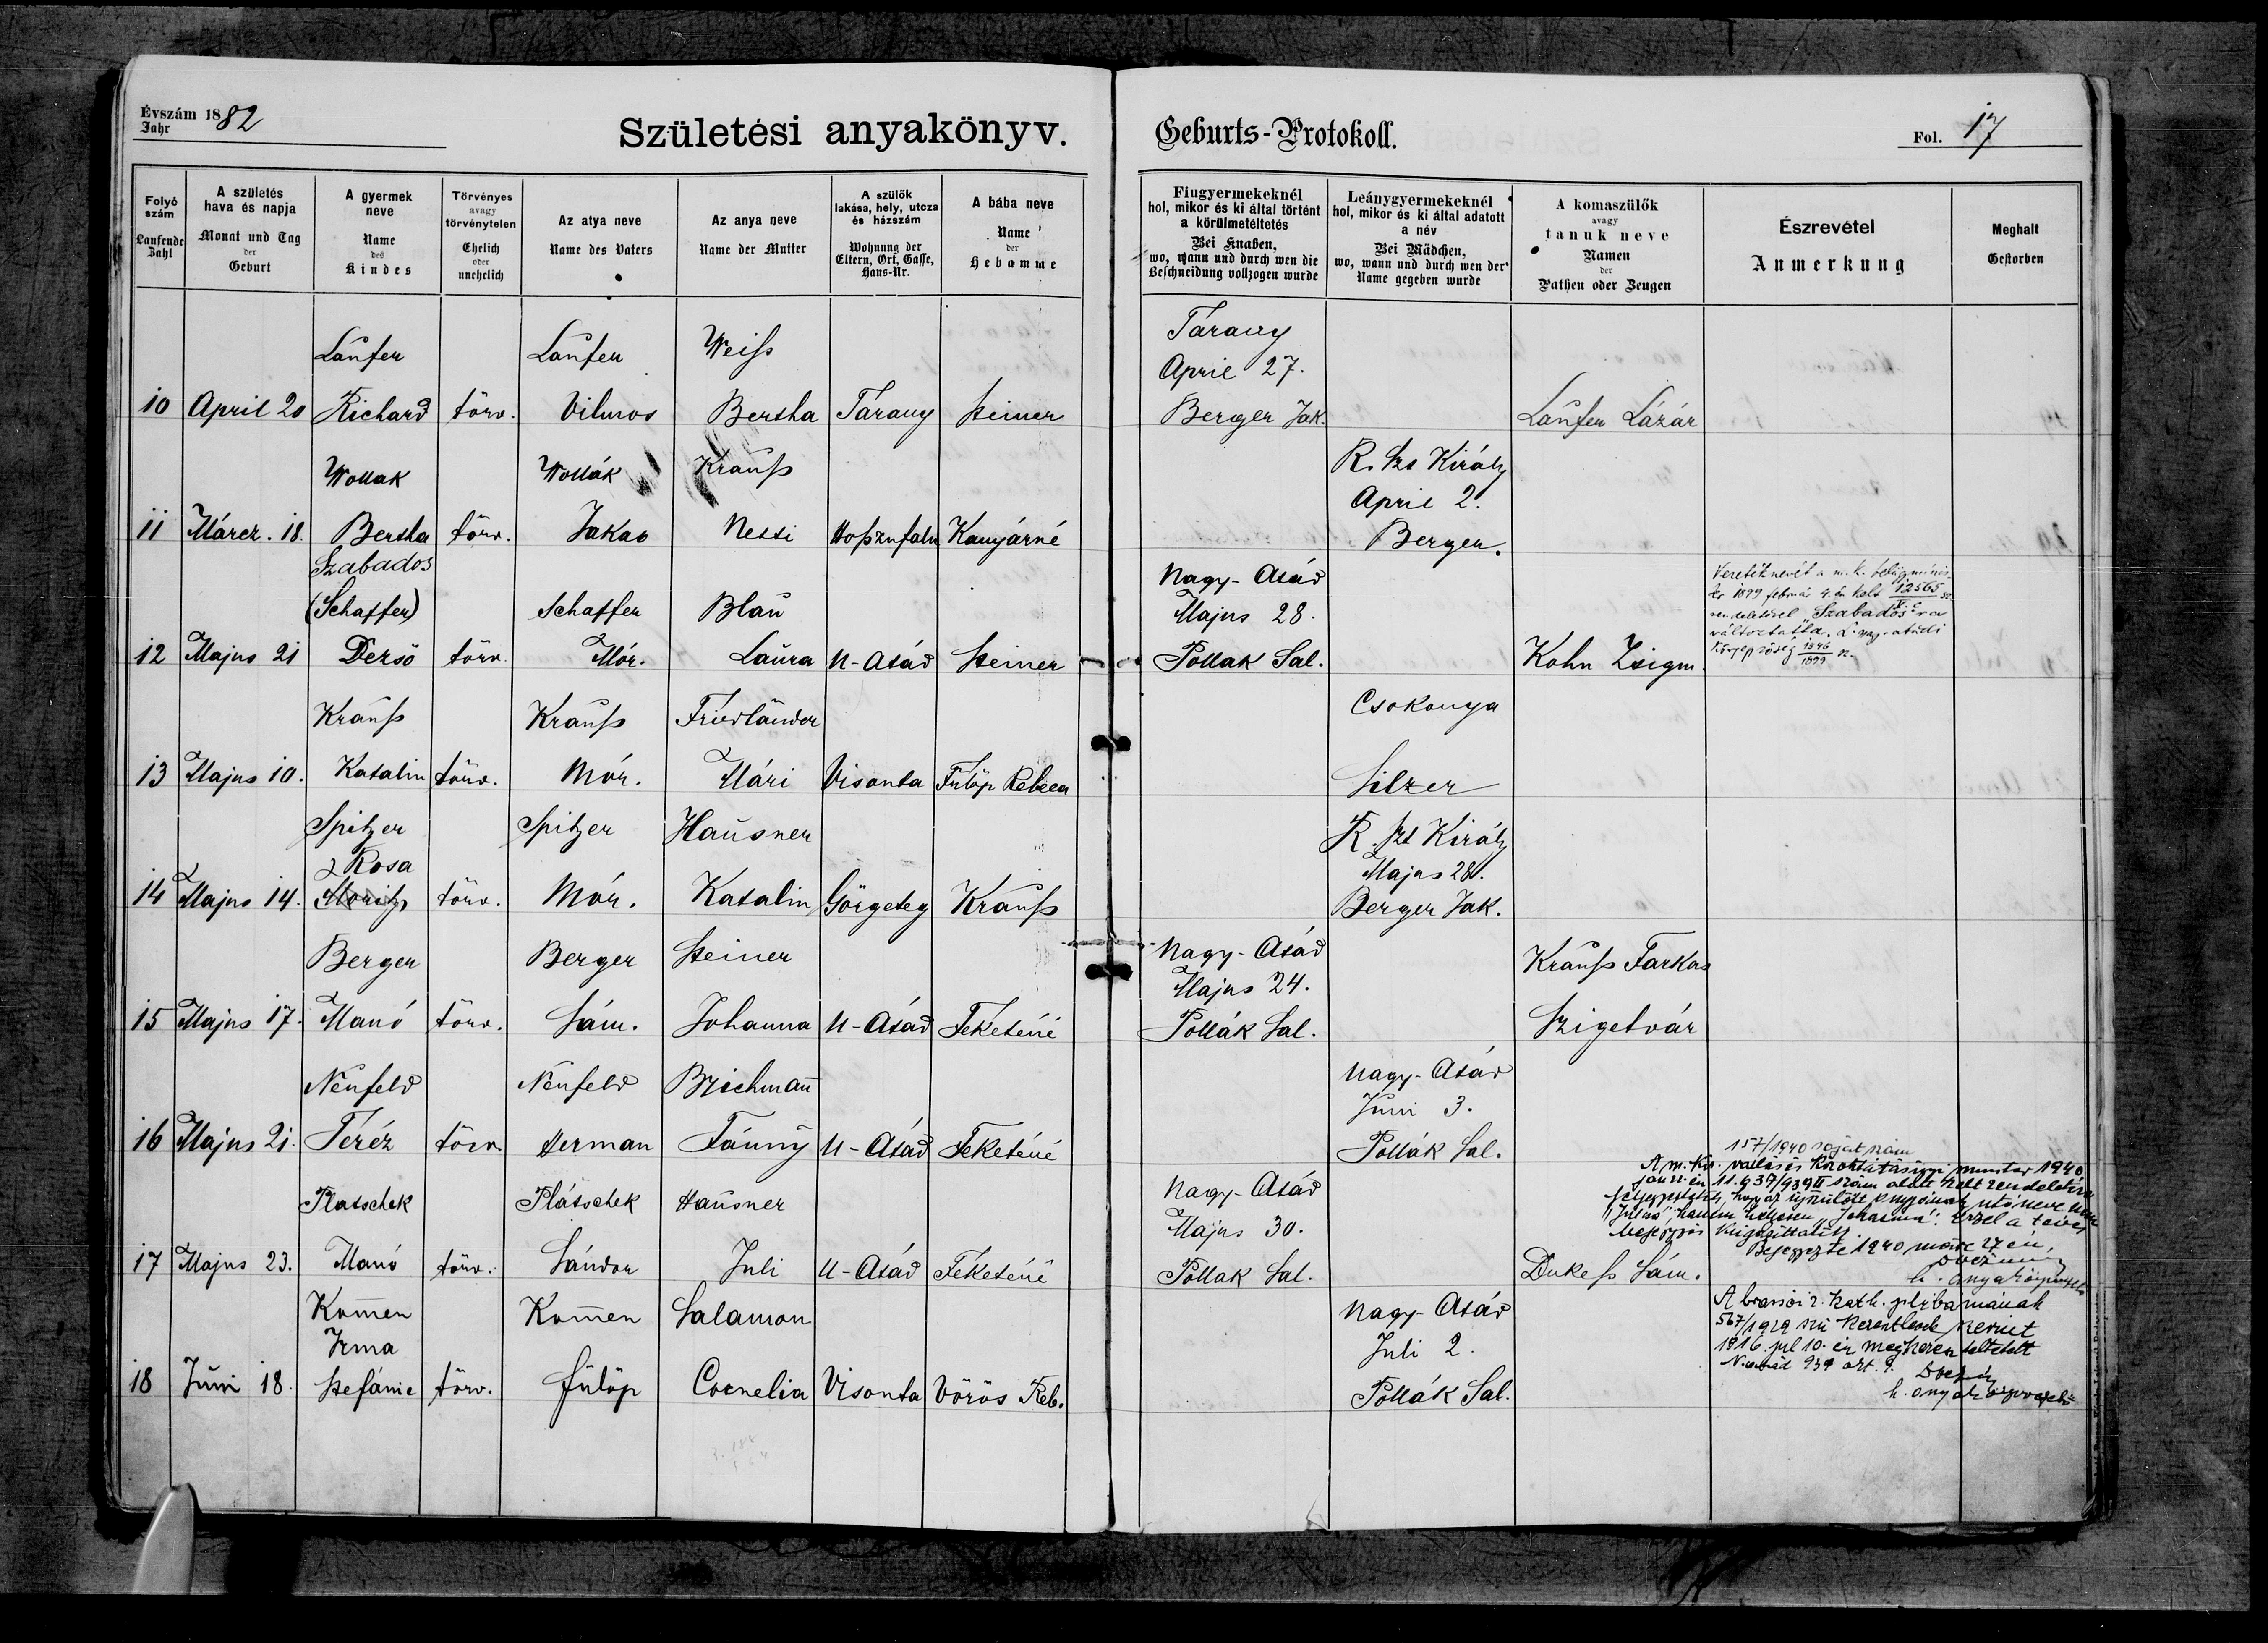 Évszám 1882
Jahr
Születési anyakönyv.
Geburts-Protokoll.
Fol. 17
Folyó szám
Laufende Zahl
A születés hava és napja
Monat und Tag der Geburt
A gyermek neve
Name des Kindes
Törvényes avagy törvénytelen
Ehelich oder unehelich
Az atya neve
Name des Vaters
Az anya neve
Name der Mutter
A szülők lakása, hely, utcza és házszám
Wohnung der Eltern, Ort, Gasse, Haus-Nr.
A bába neve
Name der Hebamme
Fiugyermekeknél hol, mikor és ki által történt a körülmetéltetés
Bei Knaben, wo, wann und durch wen die Beschneidung vollzogen wurde
Leánygyermekeknél hol, mikor és ki által adatott a név
Bei Mädchen, wo, wann und durch wen der Name gegeben wurde
A komaszülők avagy tanuk neve
Namen der Pathen oder Zeugen
Észrevétel
Anmerkung
Meghalt
Gestorben
Laufer Laufer Weiss Tarany
April 27.
10 April 20 Richard törv. Vilmos Bertha Tarany Steiner Berger Jak. Laufer Lázár
Wollak Wollák Krauss R. Szt Király
April 2.
11 Márcz. 18. Bertha törv. Jakab Netti Kanyárné Berger.
Szabados Nagy-Atád
(Schaffer) Schaffer Blau Majus 28.
12 Majus 21 Dersö törv. Mór. Laura N-Atád Steiner Pollak Sal. Kohn Zsigm.
Vezetéknevét a m. k. belügyminis-
ter 1899 február 4. én kelt 12565
rendeletével "Szabados"-ra
változtatta.
1899
Krauss Krauss Friedländer Csokonya
13 Majus 10. Katalin törv. Mór. Mári Visonta Fülöp Rebeca Silzer
Spitzer Spitzer Hausner R. Szt Király
Rosa Majus 28.
14 Majus 14. Moritz törv. Mór. Katalin Görgeteg Krauss Berger Jak.
Berger Berger Steiner Nagy-Atád Krauss Farkas
Majus 24.
15 Majus 17. Manó törv. Sám. Johanna N-Atád Feketéné Pollák Sal. Szigetvár
Neufeld Neufeld Brichmann Nagy-Atád
Juni 3.
16 Majus 21. Teréz törv. Herman Fánny N-Atád Feketéné Pollák Sal.
Platschek Plátschek Hausner Nagy-Atád
Majus 30.
17 Majus 23. Manó törv. Sándor Juli N-Atád Feketéné Pollak Sal. Dukess Sám.
157/1940
A m. kir. vallás és közoktatásügyi miniszter 1940
jan 22 én 11.637/939 II szám alatt kelt rendeletére
Bejegyezte 1940
h. anyakönyvvezető
Komen Komen Salamon Nagy-Atád
Irma Juli 2.
18 Juni 18. Stefánie törv. Fülöp Cornelia Visonta Vörös Reb. Pollák Sal.
A brassói r. kath. plébániának
567/1929
1916. jul 10. én megkeresztelkedett
h. anyakönyvvezető